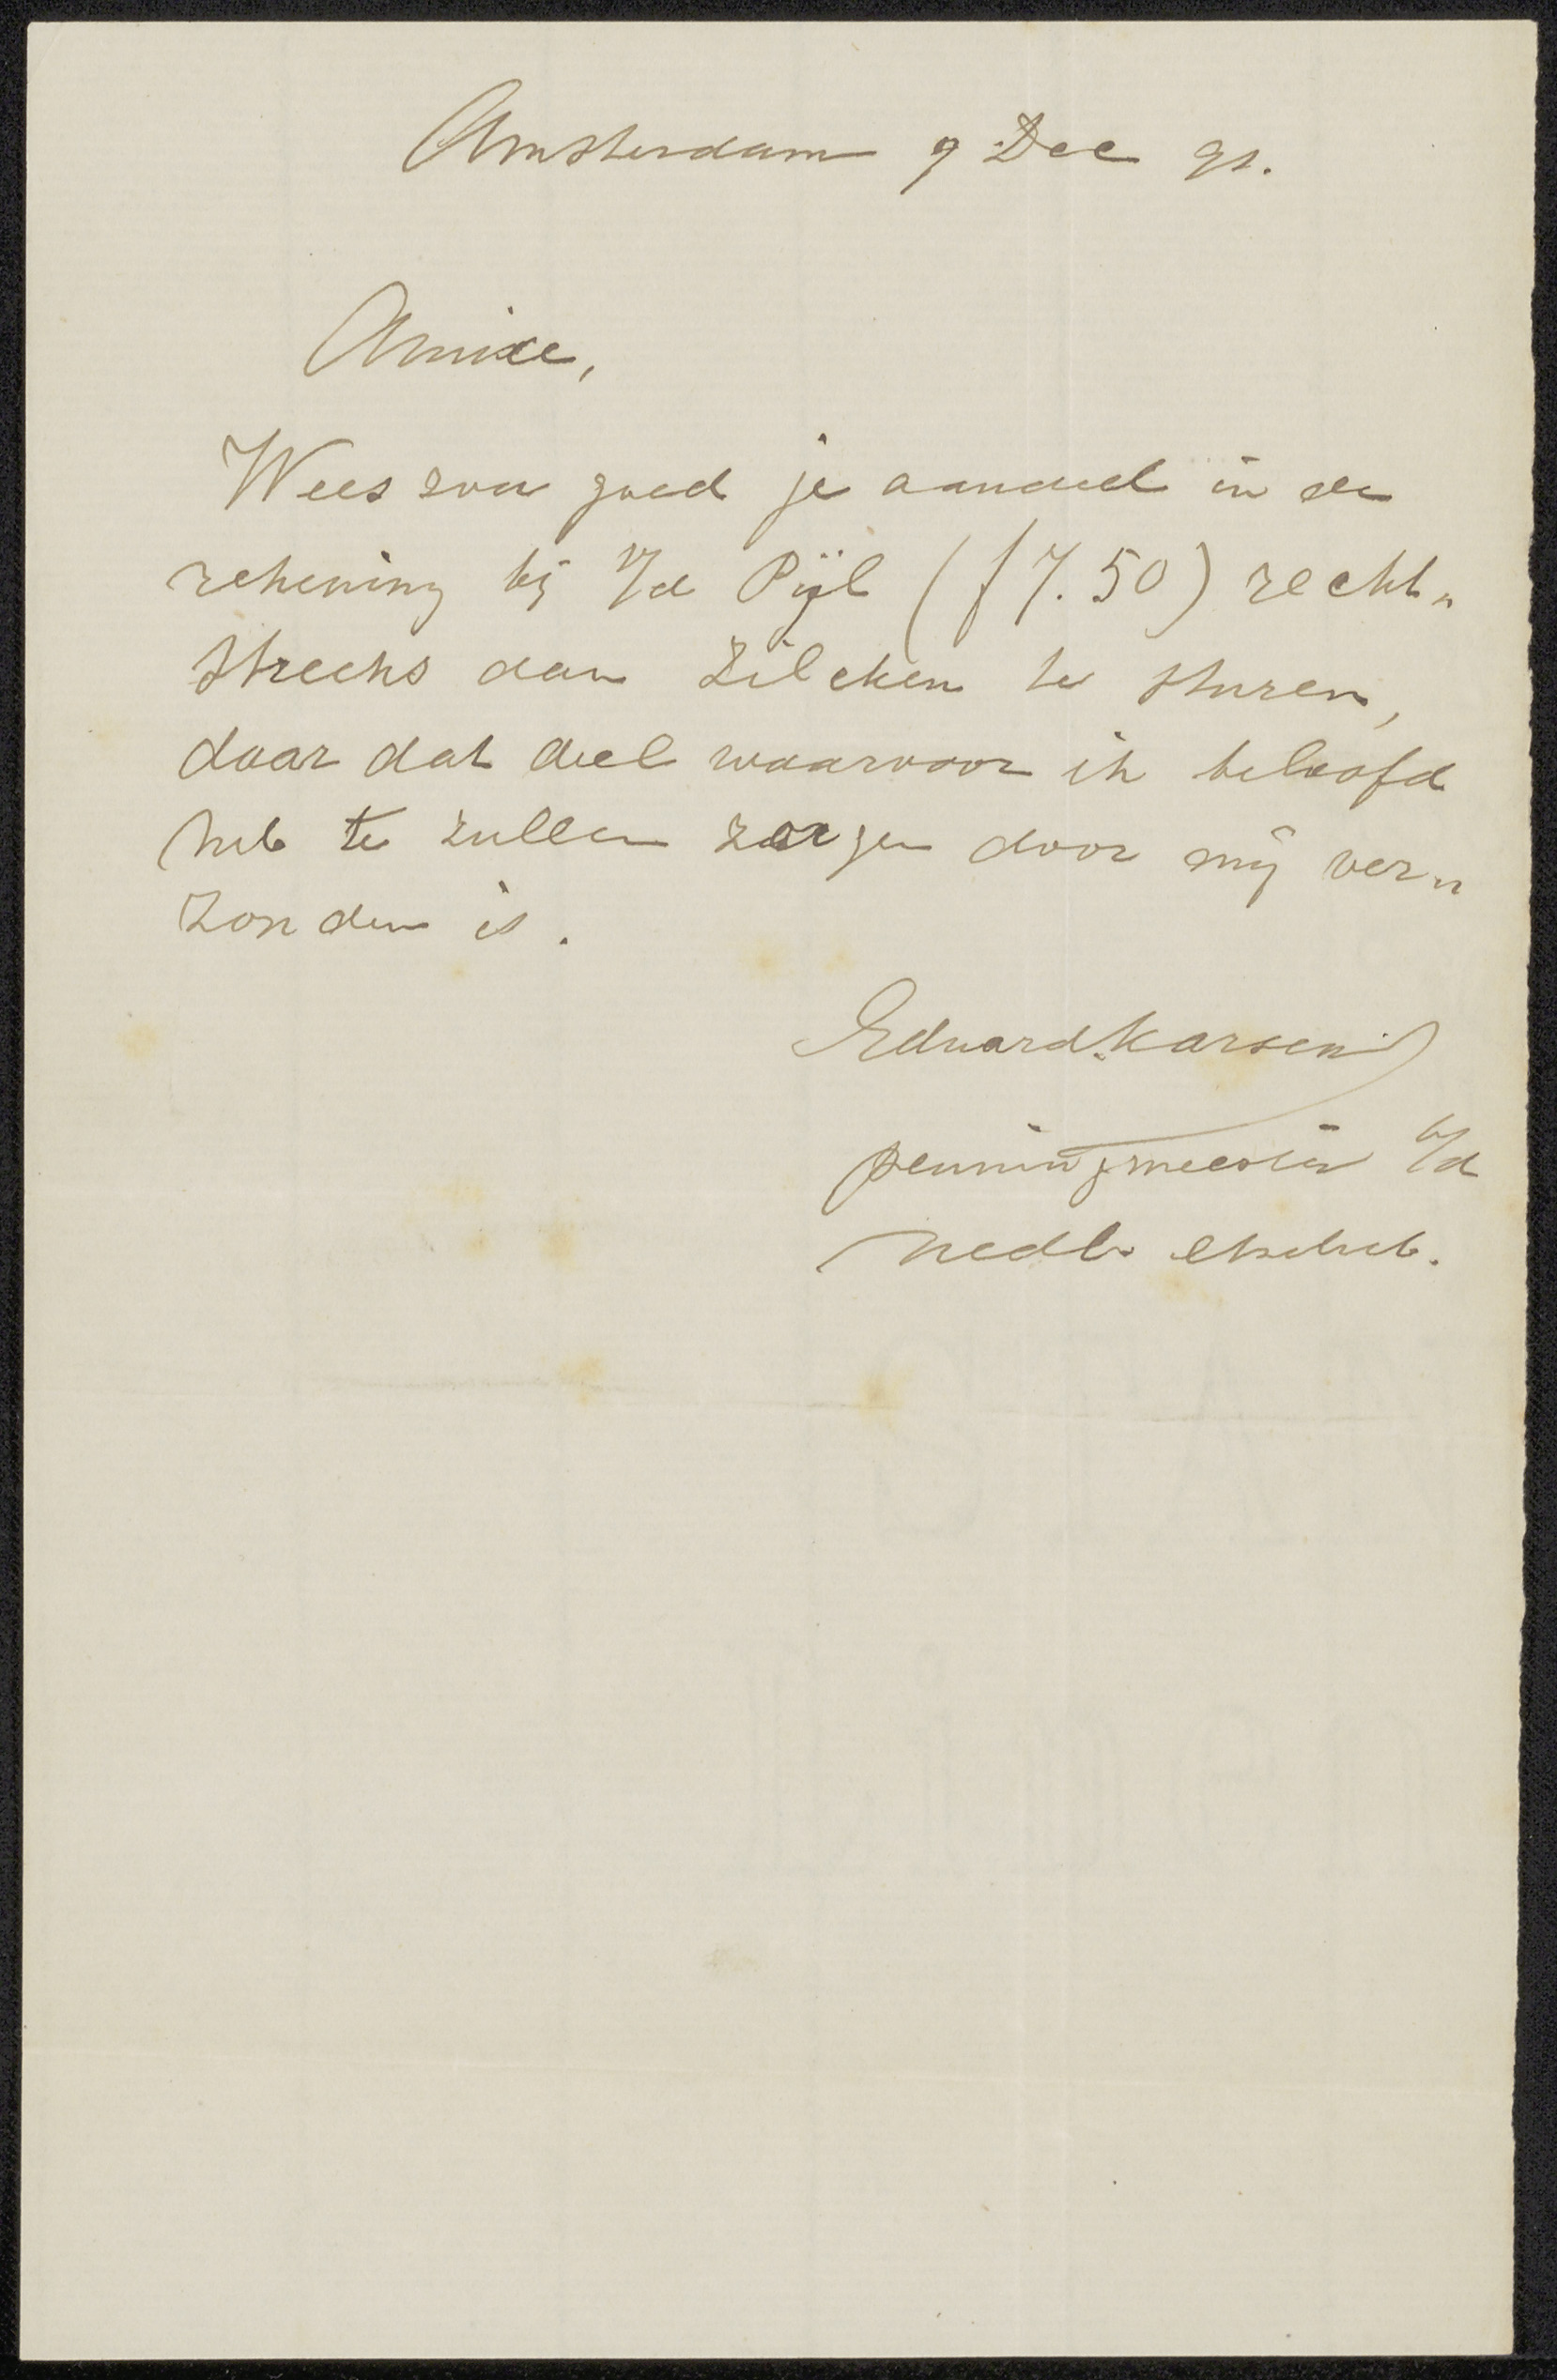 Amsterdam 9 Dec 91.
Amice,
Wees zoo goed je aandeel in de
rekening bij v/d Pijl (f 7.50) recht„
streeks aan Zilcken te sturen,
daar dat deel waarvoor ik beloofd
heb te zullen zorgen door mij ver„
zonden is.
Eduard Karsen
penningmeester v/d
Nedl. etsclub.